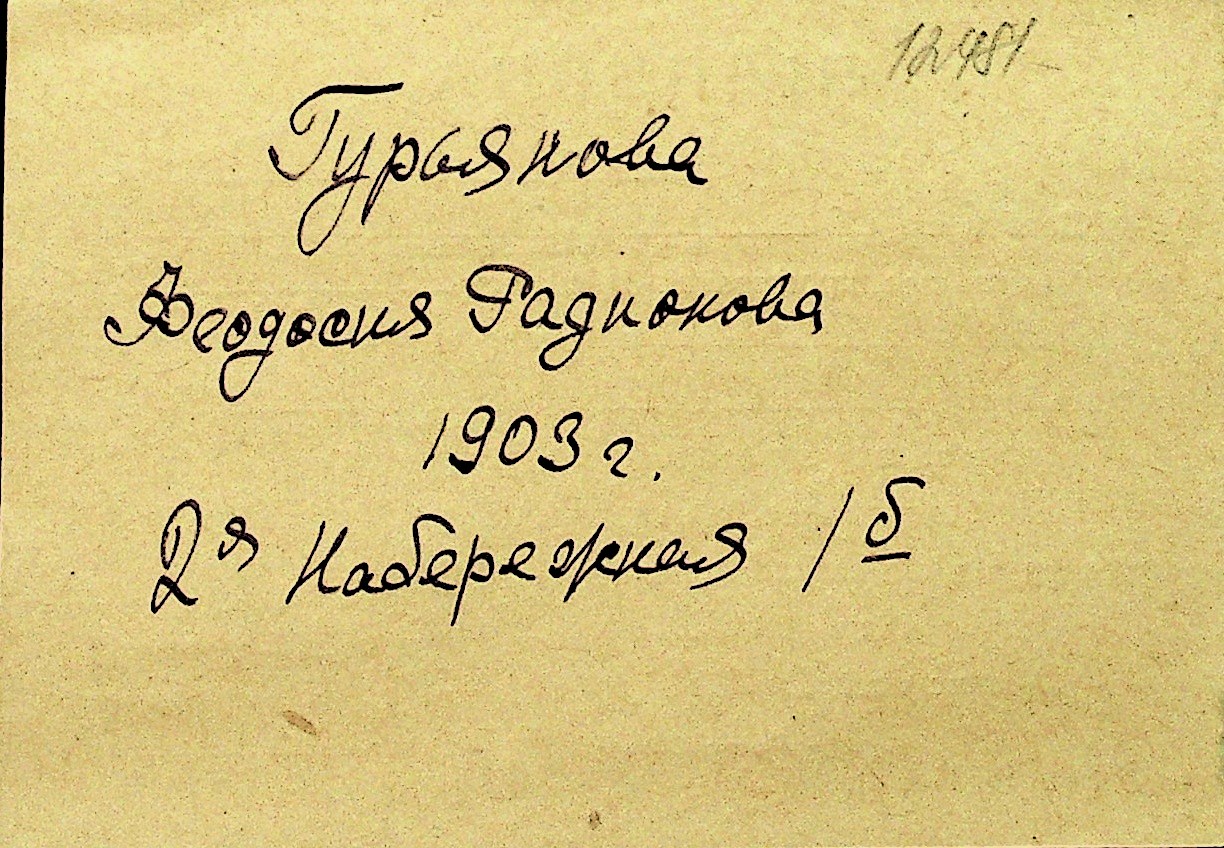 12481
Гурьянова
Феодосия Радионова
1903 г.
2я Набережная 1б